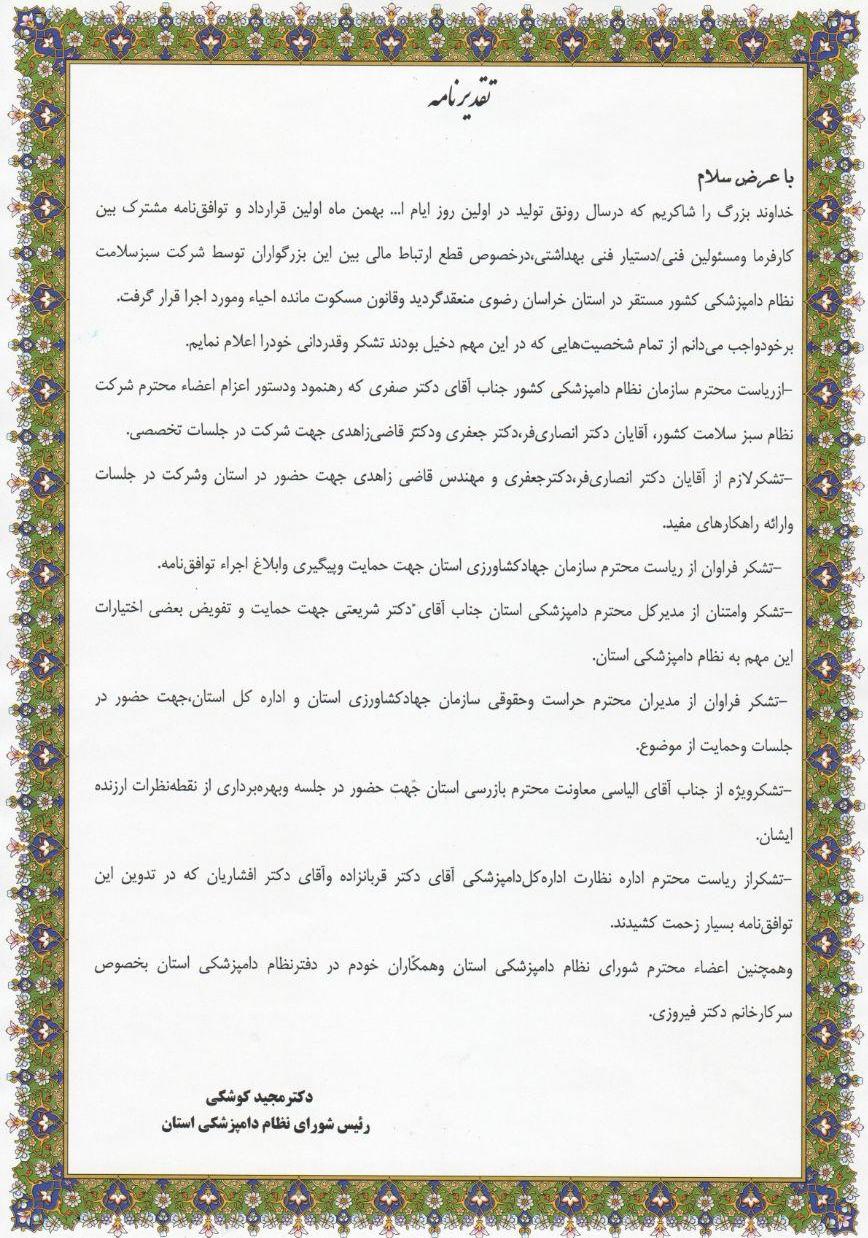 تقدیرنامه
با عرض سلام
خداوند بزرگ را شاکریم که درسال رونق تولید در اولین روز ایام ا... بهمن ماه اولین قرارداد و توافق‌نامه مشترک بین
کارفرما ومسئولین فنی/دستیار فنی بهداشتی،درخصوص قطع ارتباط مالی بین این بزرگواران توسط شرکت سبزسلامت
نظام دامپزشکی کشور مستقر در استان خراسان رضوی منعقدگردید وقانون مسکوت مانده احیاء ومورد اجرا قرار گرفت.
برخودواجب می‌دانم از تمام شخصیت‌هایی که در این مهم دخیل بودند تشکر وقدردانی خودرا اعلام نمایم.
-ازریاست محترم سازمان نظام دامپزشکی کشور جناب آقای دکتر صفری که رهنمود ودستور اعزام اعضاء محترم شرکت
نظام سبز سلامت کشور، آقایان دکتر انصاری‌فر،دکتر جعفری ودکتر قاضی‌زاهدی جهت شرکت در جلسات تخصصی.
-تشکرلازم از آقایان دکتر انصاری‌فر،دکترجعفری و مهندس قاضی زاهدی جهت حضور در استان وشرکت در جلسات
وارائه راهکارهای مفید.
-تشکر فراوان از ریاست محترم سازمان جهادکشاورزی استان جهت حمایت وپیگیری وابلاغ اجراء توافق‌نامه.
-تشکر وامتنان از مدیرکل محترم دامپزشکی استان جناب آقای دکتر شریعتی جهت حمایت و تفویض بعضی اختیارات
این مهم به نظام دامپزشکی استان.
-تشکر فراوان از مدیران محترم حراست وحقوقی سازمان جهادکشاورزی استان و اداره کل استان،جهت حضور در
جلسات وحمایت از موضوع.
-تشکرویژه از جناب آقای الیاسی معاونت محترم بازرسی استان جهت حضور در جلسه وبهره‌برداری از نقطه‌نظرات ارزنده
ایشان.
-تشکراز ریاست محترم اداره نظارت اداره‌کل‌دامپزشکی آقای دکتر قربانزاده وآقای دکتر افشاریان که در تدوین این
توافق‌نامه بسیار زحمت کشیدند.
وهمچنین اعضاء محترم شورای نظام دامپزشکی استان وهمکاران خودم در دفترنظام دامپزشکی استان بخصوص
سرکارخانم دکتر فیروزی.
دکترمجید کوشکی
رئیس شورای نظام دامپزشکی استان